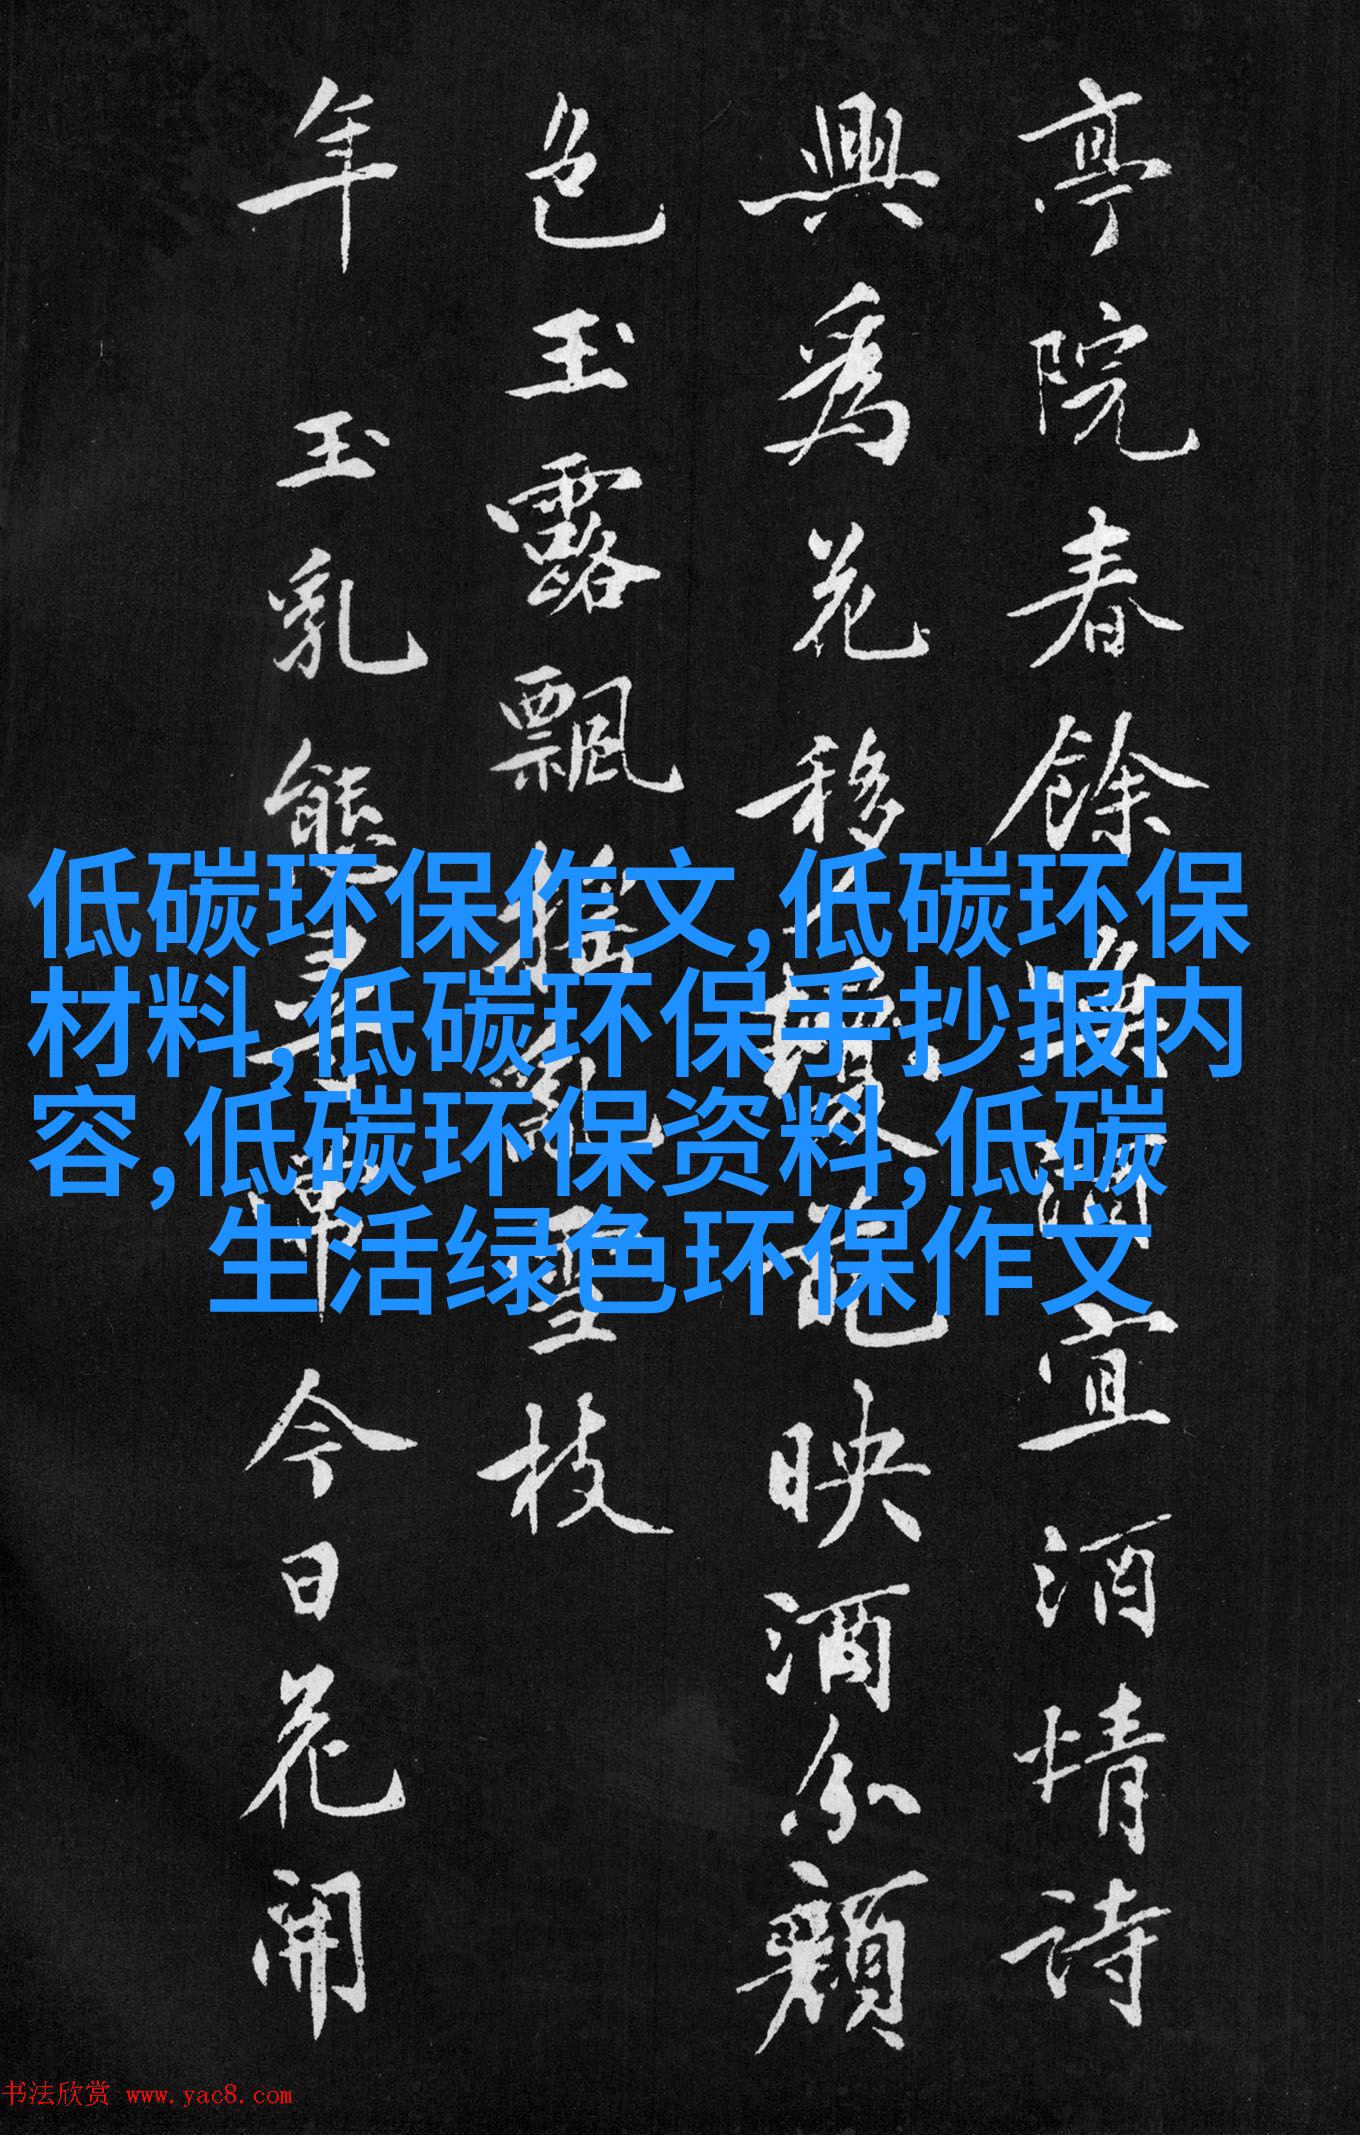 亭院春餘宜酒情詩
興爲花移映酒分顏
色玉露飄搖亂雪枝
年玉乳熊今日花開
低碳环保作文,低碳环保
材料,低碳环保手抄报内
容,低碳环保资料,低碳
生活绿色环保作文
书法欣赏 www.yac8.com